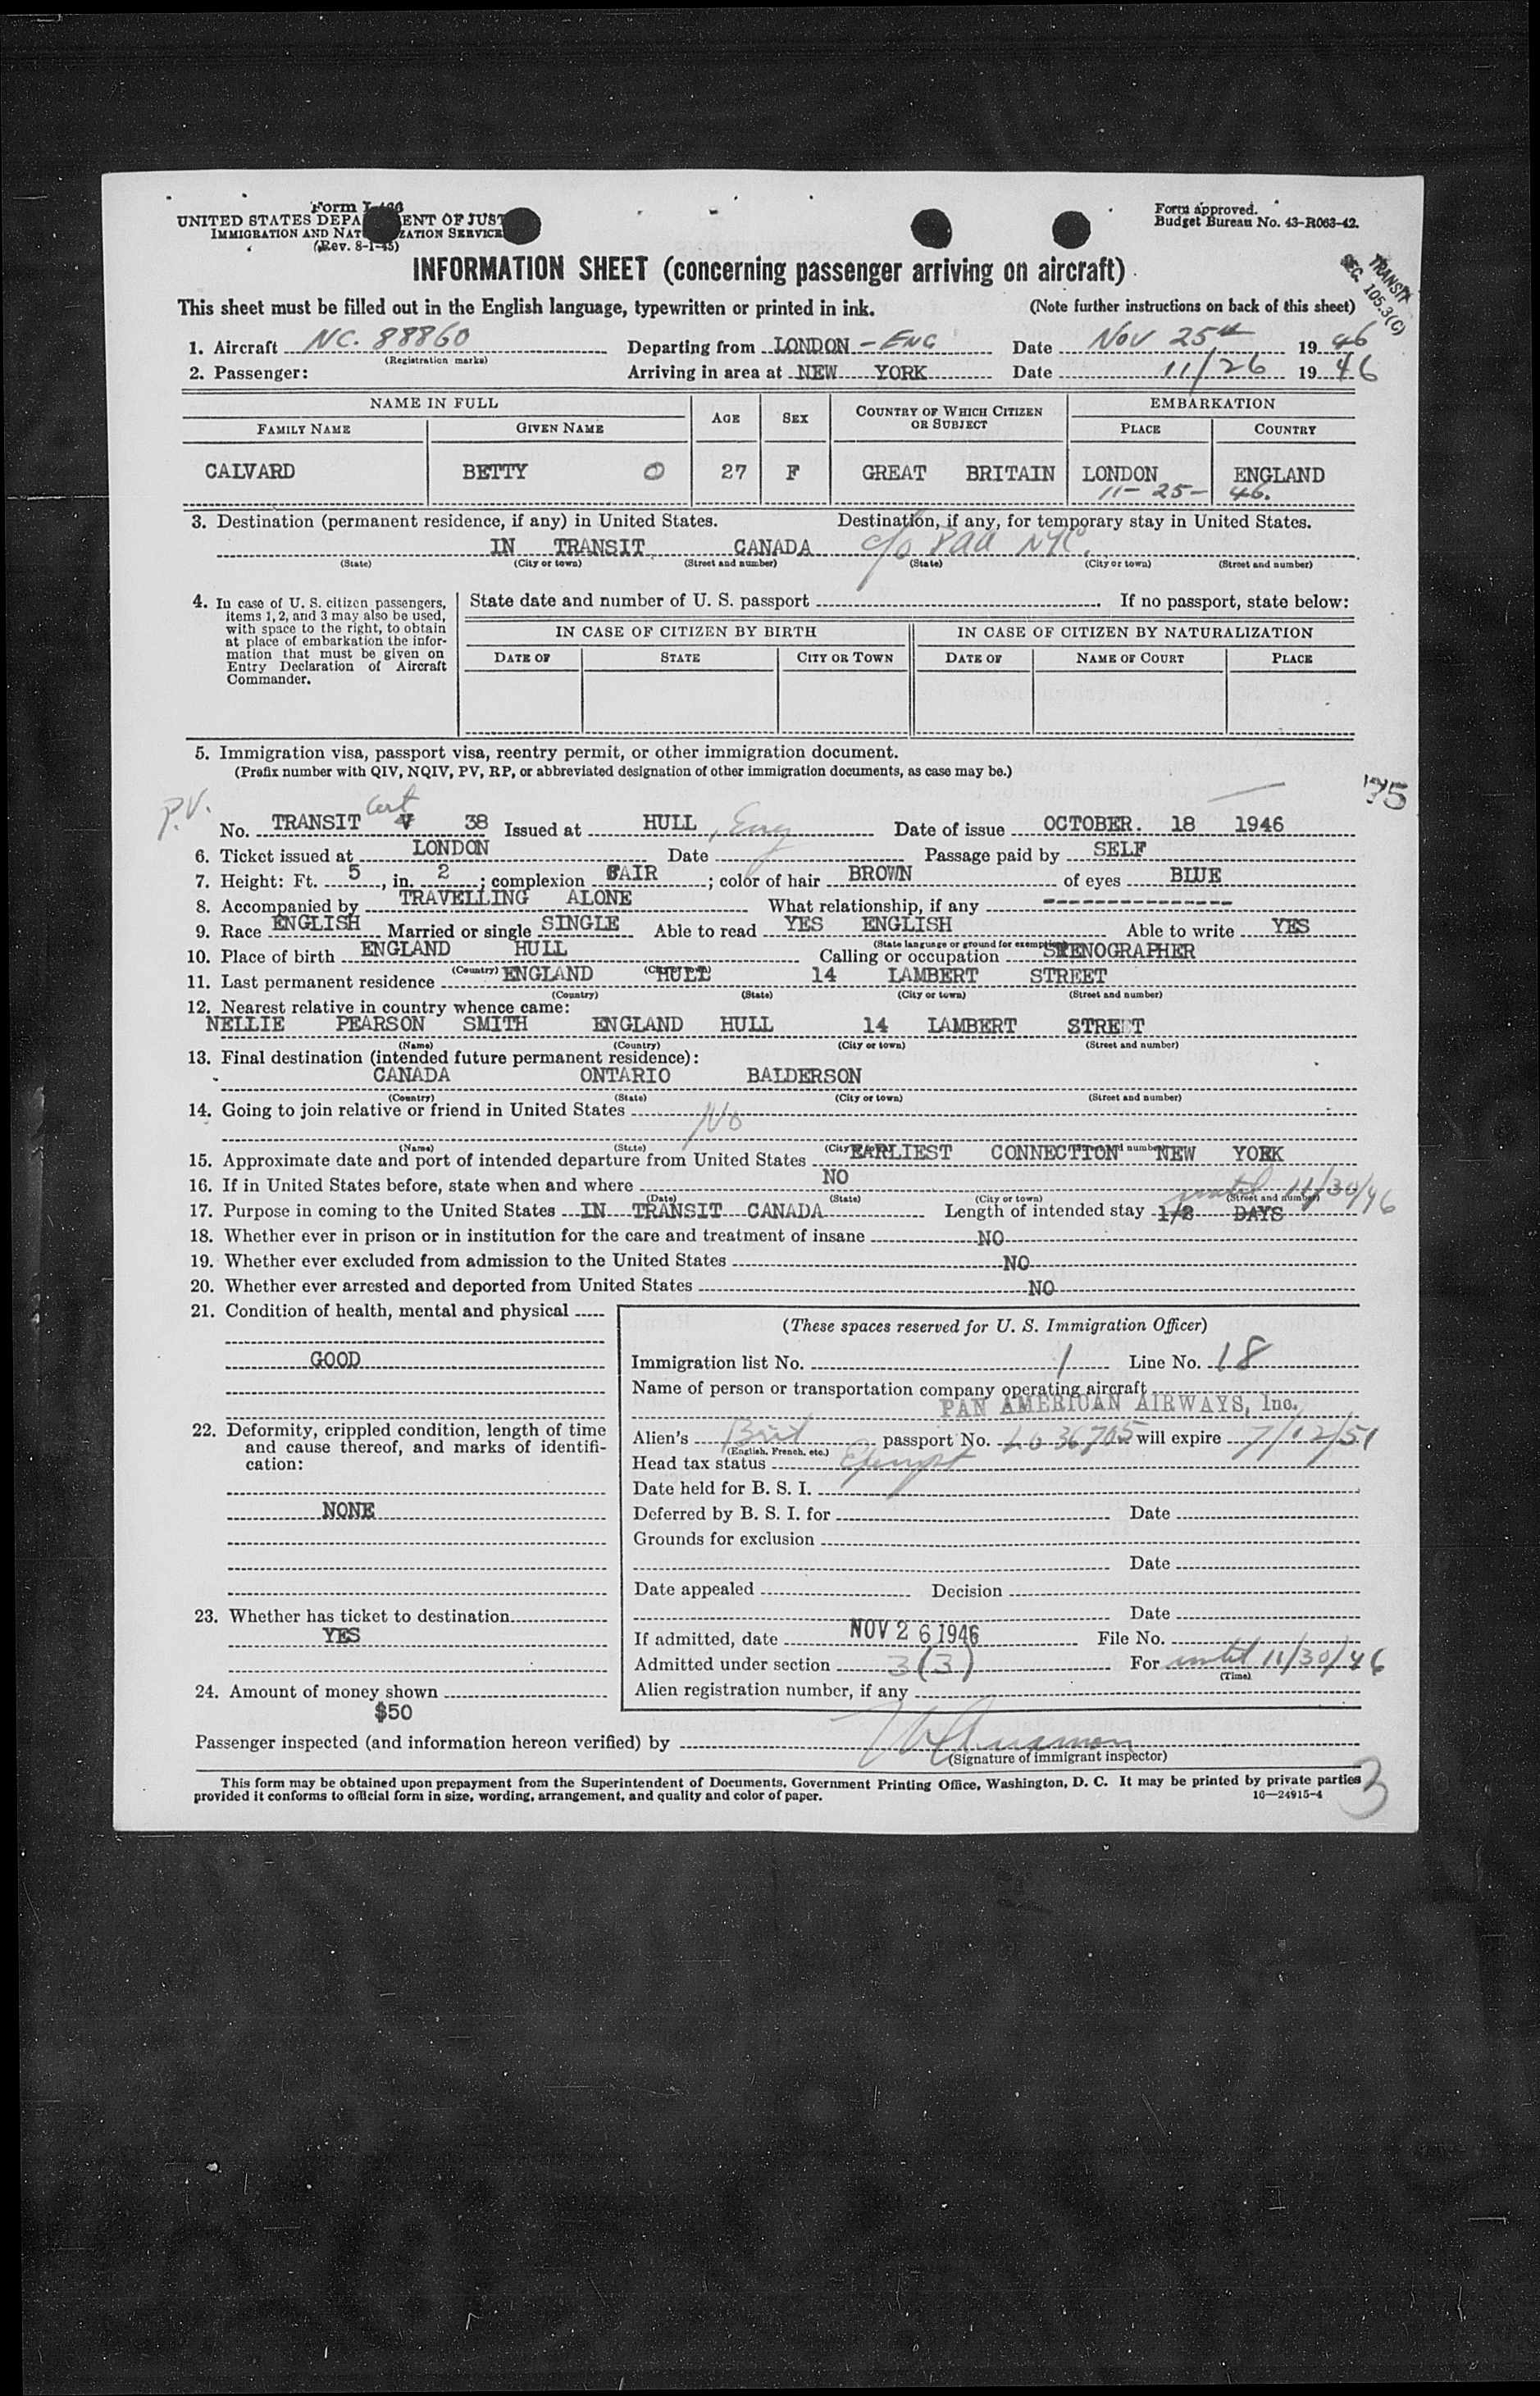 Form I-466
UNITED STATES DEPARTMENT OF JUSTICE
IMMIGRATION AND NATURALIZATION SERVICE
(Rev. 8-1-45)
Form approved.
Budget Bureau No. 43-R063-42.
TRANSIT
SEC. 105.3(C)
INFORMATION SHEET (concerning passenger arriving on aircraft)
This sheet must be filled out in the English language, typewritten or printed in ink. (Note further instructions on back of this sheet)
1. Aircraft NC. 88860 Departing from LONDON - ENG Date Nov 25th 1946
(Registration marks)
2. Passenger: Arriving in area at NEW YORK Date 11/26 1946
NAME IN FULL AGE SEX COUNTRY OF WHICH CITIZEN OR SUBJECT EMBARKATION
FAMILY NAME GIVEN NAME PLACE COUNTRY
CALVARD BETTY O 27 F GREAT BRITAIN LONDON ENGLAND
11-25-46.
3. Destination (permanent residence, if any) in United States. Destination, if any, for temporary stay in United States.
IN TRANSIT CANADA c/o Paa NYC.
(State) (City or town) (Street and number) (State) (City or town) (Street and number)
4. In case of U. S. citizen passengers, items 1, 2, and 3 may also be used, with space to the right, to obtain at place of embarkation the information that must be given on Entry Declaration of Aircraft Commander.
State date and number of U. S. passport If no passport, state below:
IN CASE OF CITIZEN BY BIRTH IN CASE OF CITIZEN BY NATURALIZATION
DATE OF STATE CITY OR TOWN DATE OF NAME OF COURT PLACE
5. Immigration visa, passport visa, reentry permit, or other immigration document.
(Prefix number with QIV, NQIV, PV, RP, or abbreviated designation of other immigration documents, as case may be.)
75
P.V. Cert
No. TRANSIT V 38 Issued at HULL, Eng Date of issue OCTOBER. 18 1946
6. Ticket issued at LONDON Date Passage paid by SELF
7. Height: Ft. 5, in. 2; complexion FAIR; color of hair BROWN of eyes BLUE
8. Accompanied by TRAVELLING ALONE What relationship, if any ---------------
9. Race ENGLISH Married or single SINGLE Able to read YES ENGLISH Able to write YES
(State language or ground for exemption)
10. Place of birth ENGLAND HULL Calling or occupation STENOGRAPHER
(Country) (City or town)
11. Last permanent residence ENGLAND HULL 14 LAMBERT STREET
(Country) (State) (City or town) (Street and number)
12. Nearest relative in country whence came:
NELLIE PEARSON SMITH ENGLAND HULL 14 LAMBERT STREET
(Name) (Country) (City or town) (Street and number)
13. Final destination (intended future permanent residence):
CANADA ONTARIO BALDERSON
(Country) (State) (City or town) (Street and number)
14. Going to join relative or friend in United States No
(Name) (State)
15. Approximate date and port of intended departure from United States EARLIEST CONNECTION NEW YORK
16. If in United States before, state when and where NO
(Date) (State) (City or town) (Street and number)
until 11/30/46
17. Purpose in coming to the United States IN TRANSIT CANADA Length of intended stay 1/2 DAYS
18. Whether ever in prison or in institution for the care and treatment of insane NO
19. Whether ever excluded from admission to the United States NO
20. Whether ever arrested and deported from United States NO
21. Condition of health, mental and physical
GOOD
22. Deformity, crippled condition, length of time and cause thereof, and marks of identification:
NONE
23. Whether has ticket to destination
YES
24. Amount of money shown
$50
(These spaces reserved for U. S. Immigration Officer)
Immigration list No. 1 Line No. 18
Name of person or transportation company operating aircraft
PAN AMERICAN AIRWAYS, Inc.
Alien's Brit passport No. LO 36705 will expire 7/12/51
(English, French, etc.)
Head tax status Exempt
Date held for B. S. I.
Deferred by B. S. I. for Date
Grounds for exclusion
Date
Date appealed Decision
Date
If admitted, date NOV 26 1946 File No.
Admitted under section 3(3) For until 11/30/46
(Time)
Alien registration number, if any
Passenger inspected (and information hereon verified) by
(Signature of immigrant inspector)
This form may be obtained upon prepayment from the Superintendent of Documents, Government Printing Office, Washington, D. C. It may be printed by private parties
provided it conforms to official form in size, wording, arrangement, and quality and color of paper. 16—24915-4
3